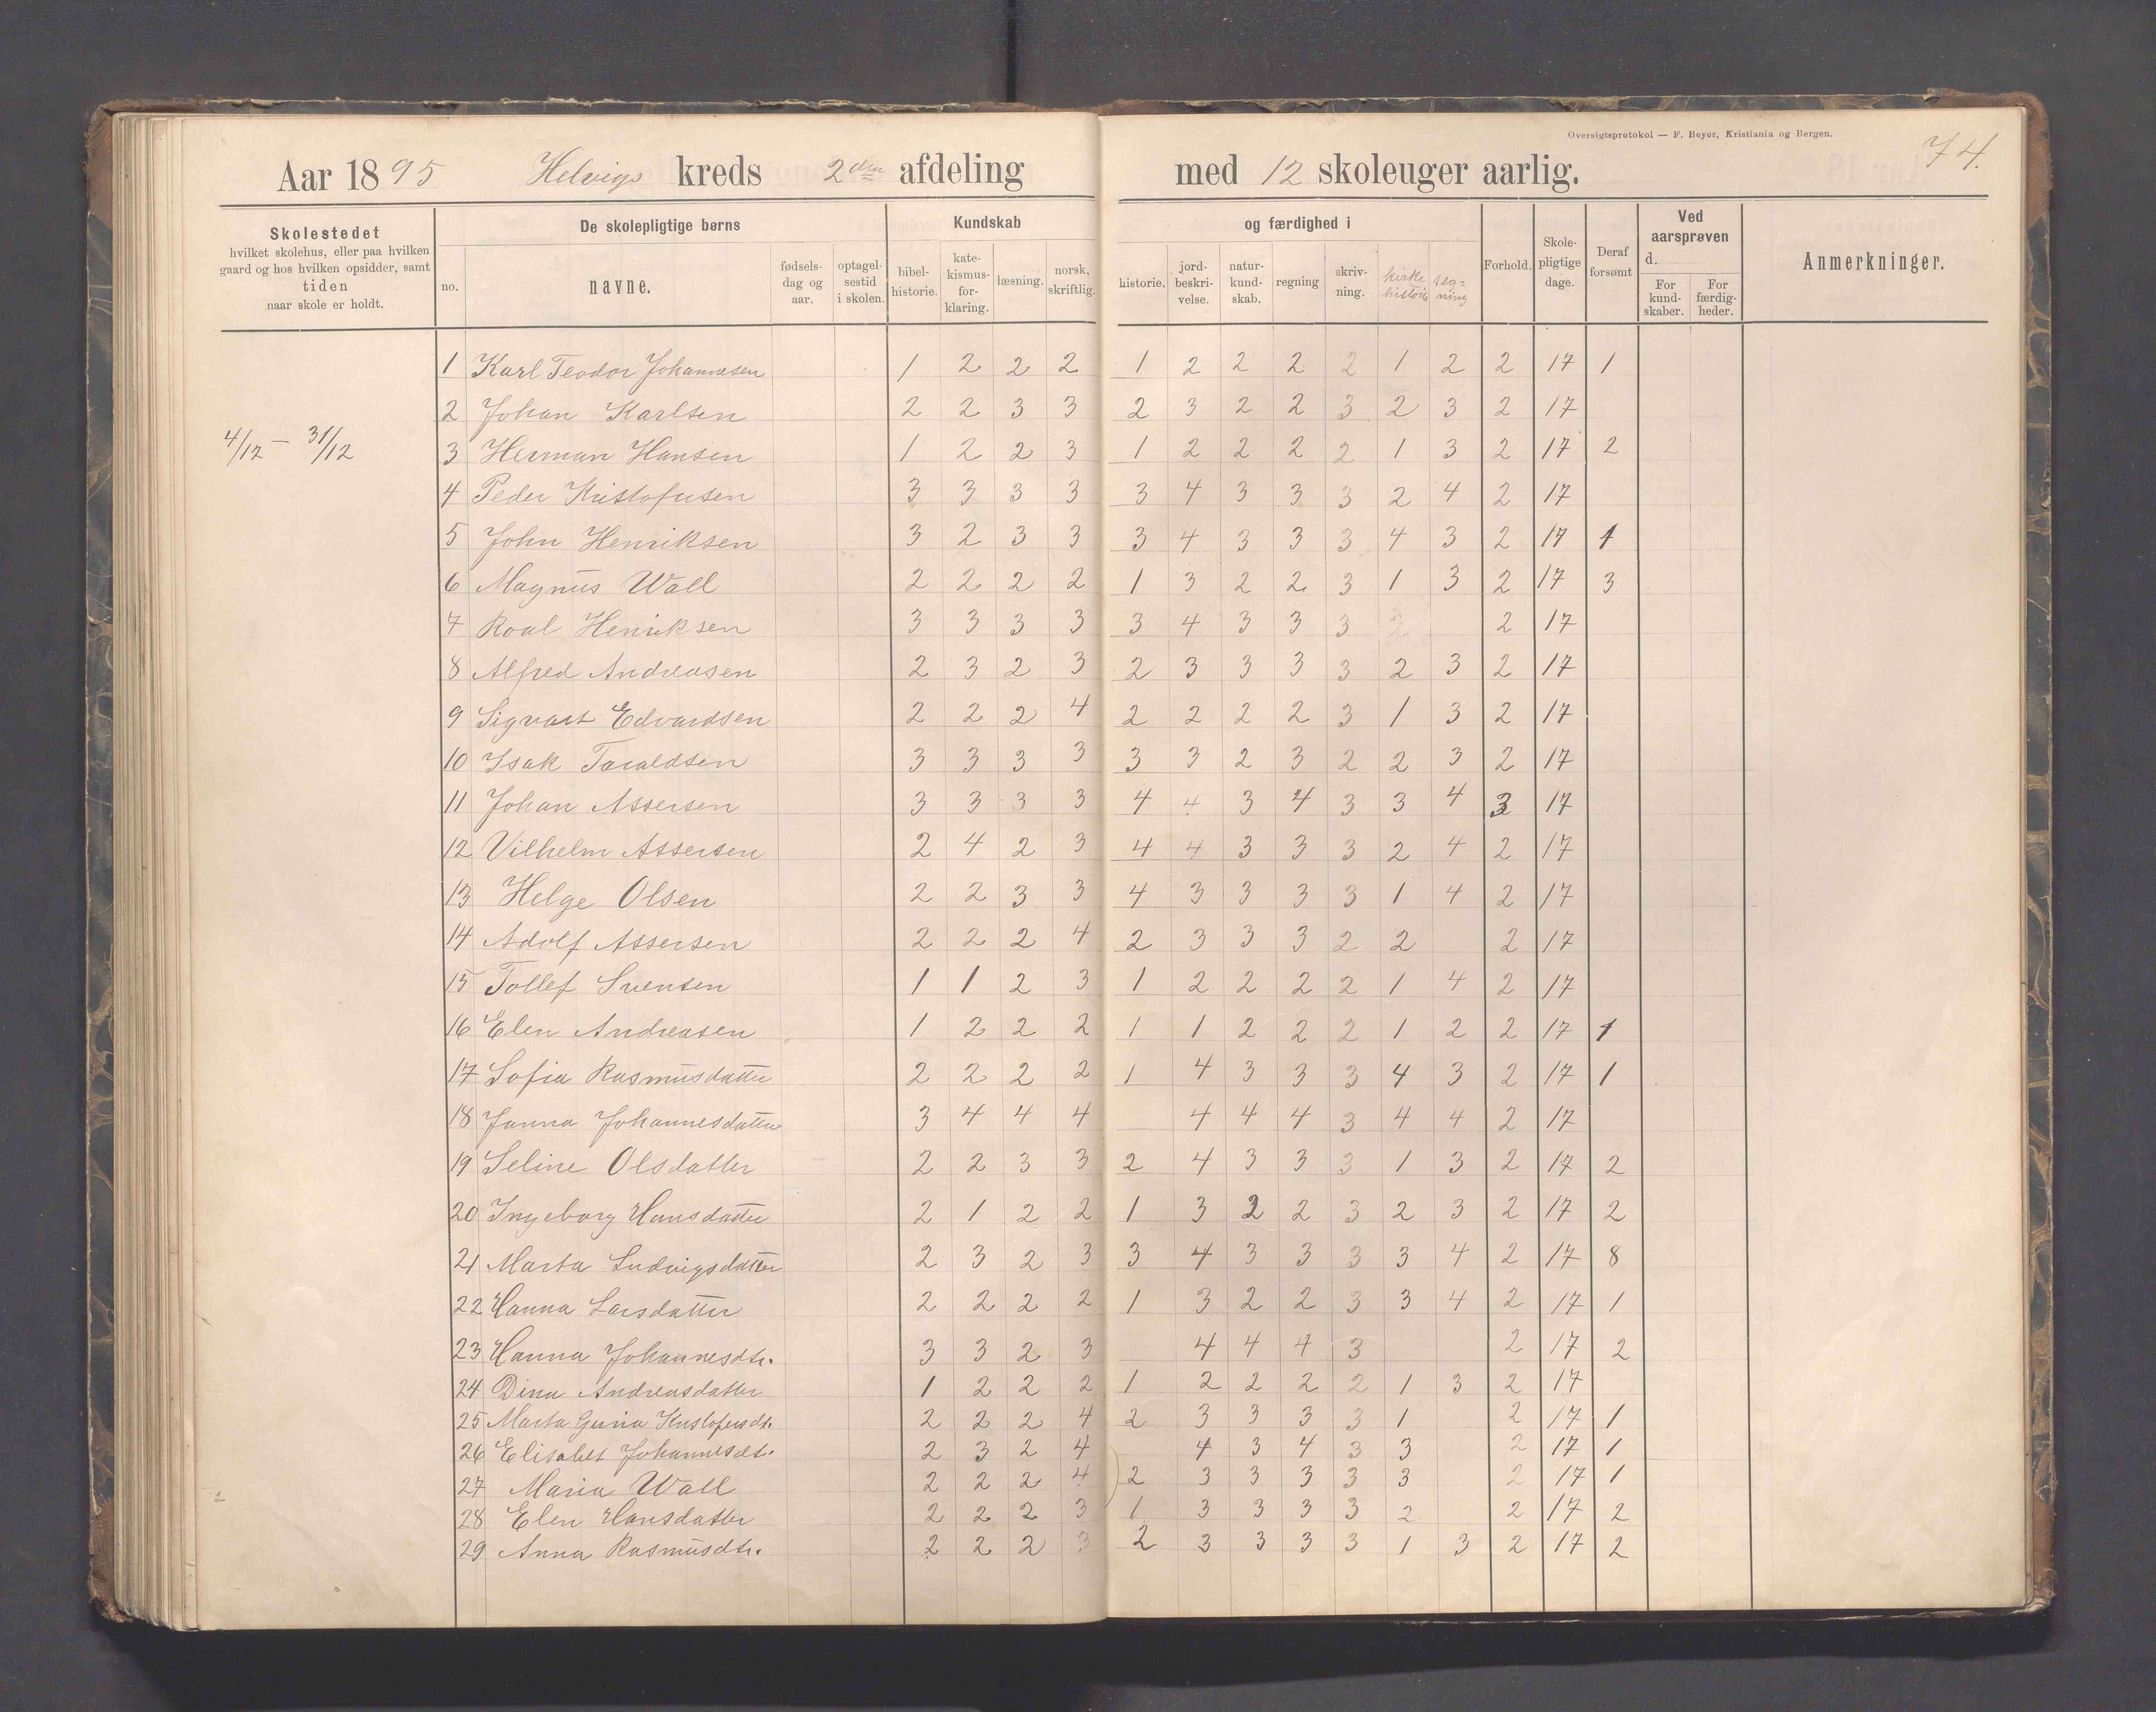 Oversigtsprotokol — F. Beyer, Kristiania og Bergen.
74.
Aar 1895 Helvigs kreds 2den afdeling med 12 skoleuger aarlig.
Skolestedet hvilket skolehus, eller paa hvilken gaard og hos hvilken opsidder, samt tiden naar skole er holdt.
De skolepligtige børns
no. navne. fødselsdag og aar. optagelsestid i skolen.
Kundskab og færdighed i
bibelhistorie. katekismusforklaring. læsning. norsk, skriftlig. historie. jordbeskrivelse. naturkundskab. regning skrivning. kirkehistorie tegning
Forhold. Skolepligtige dage. Deraf forsømt
Ved aarsprøven d.
For kundskaber. For færdigheder.
Anmerkninger.
4/12 – 31/12
1 Karl Teodor Johannesen 1 2 2 2 1 2 2 2 2 1 2 2 17 1
2 Johan Karlsen 2 2 3 3 2 3 2 2 3 2 3 2 17
3 Herman Hansen 1 2 2 3 1 2 2 2 2 1 3 2 17 2
4 Peder Kristofersen 3 3 3 3 3 4 3 3 3 2 4 2 17
5 John Henriksen 3 2 3 3 3 4 3 3 3 4 3 2 17 1
6 Magnus Wall 2 2 2 2 1 3 2 2 3 1 3 2 17 3
7 Roal Henriksen 3 3 3 3 3 4 3 3 3 2 2 17
8 Alfred Andreasen 2 3 2 3 2 3 3 3 3 2 3 2 17
9 Sigvart Edvardsen 2 2 2 4 2 2 2 2 3 1 3 2 17
10 Isak Taraldsen 3 3 3 3 3 3 2 3 2 2 3 2 17
11 Johan Assersen 3 3 3 3 4 4 3 4 3 3 4 3 17
12 Vilhelm Assersen 2 4 2 3 4 4 3 3 3 2 4 2 17
13 Helge Olsen 2 2 3 3 4 3 3 3 3 1 4 2 17
14 Adolf Assersen 2 2 2 4 2 3 3 3 2 2 2 17
15 Tollef Svensen 1 1 2 3 1 2 2 2 2 1 4 2 17
16 Elen Andreasen 1 2 2 2 1 1 2 2 2 1 2 2 17 1
17 Sofia Rasmusdatter 2 2 2 2 1 4 3 3 3 4 3 2 17 1
18 Janna Johannesdatter 3 4 4 4 4 4 4 3 4 4 2 17
19 Seline Olsdatter 2 2 3 3 2 4 3 3 3 1 3 2 17 2
20 Ingeborg Hansdatter 2 1 2 2 1 3 2 2 3 2 3 2 17 2
21 Marta Ludvigsdatter 2 3 2 3 3 4 3 3 3 3 4 2 17 8
22 Hanna Larsdatter 2 2 2 2 1 3 2 2 3 3 4 2 17 1
23 Hanna Johannesdtr. 3 3 2 3 4 4 4 3 2 17 2
24 Dina Andreasdatter 1 2 2 2 1 2 2 2 2 1 3 2 17
25 Marta Guria Kristofersdt. 2 2 2 4 2 3 3 3 3 1 2 17 1
26 Elisabet Johannesdt. 2 3 2 4 4 3 4 3 3 2 17 1
27 Maria Wall 2 2 2 4 2 3 3 3 3 3 2 17 1
28 Elen Hansdatter 2 2 2 3 1 3 3 3 3 2 2 17 2
29 Anna Rasmusdtr. 2 2 2 3 2 3 3 3 3 1 3 2 17 2